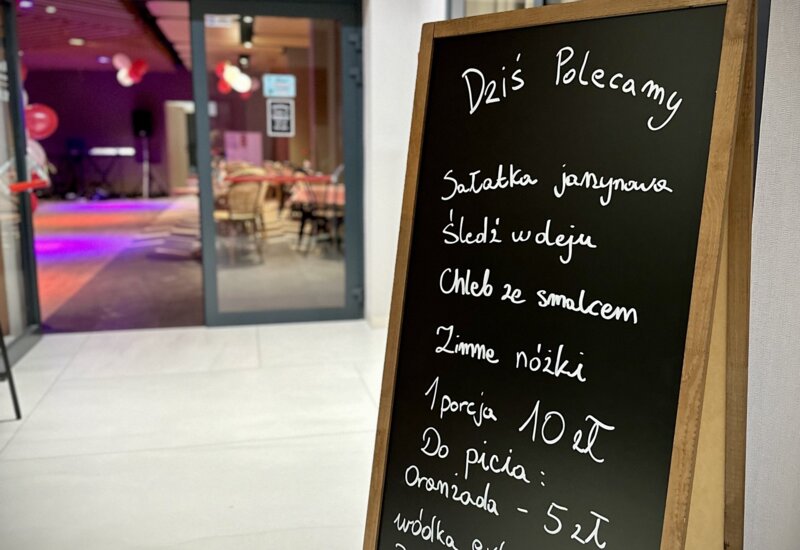 Dziś Polecamy
Sałatka jarzynowa
Śledź w oleju
Chleb ze smalcem
Zimne nóżki
1 porcja 10 zł
Do picia:
Oranżada - 5 zł
wódka